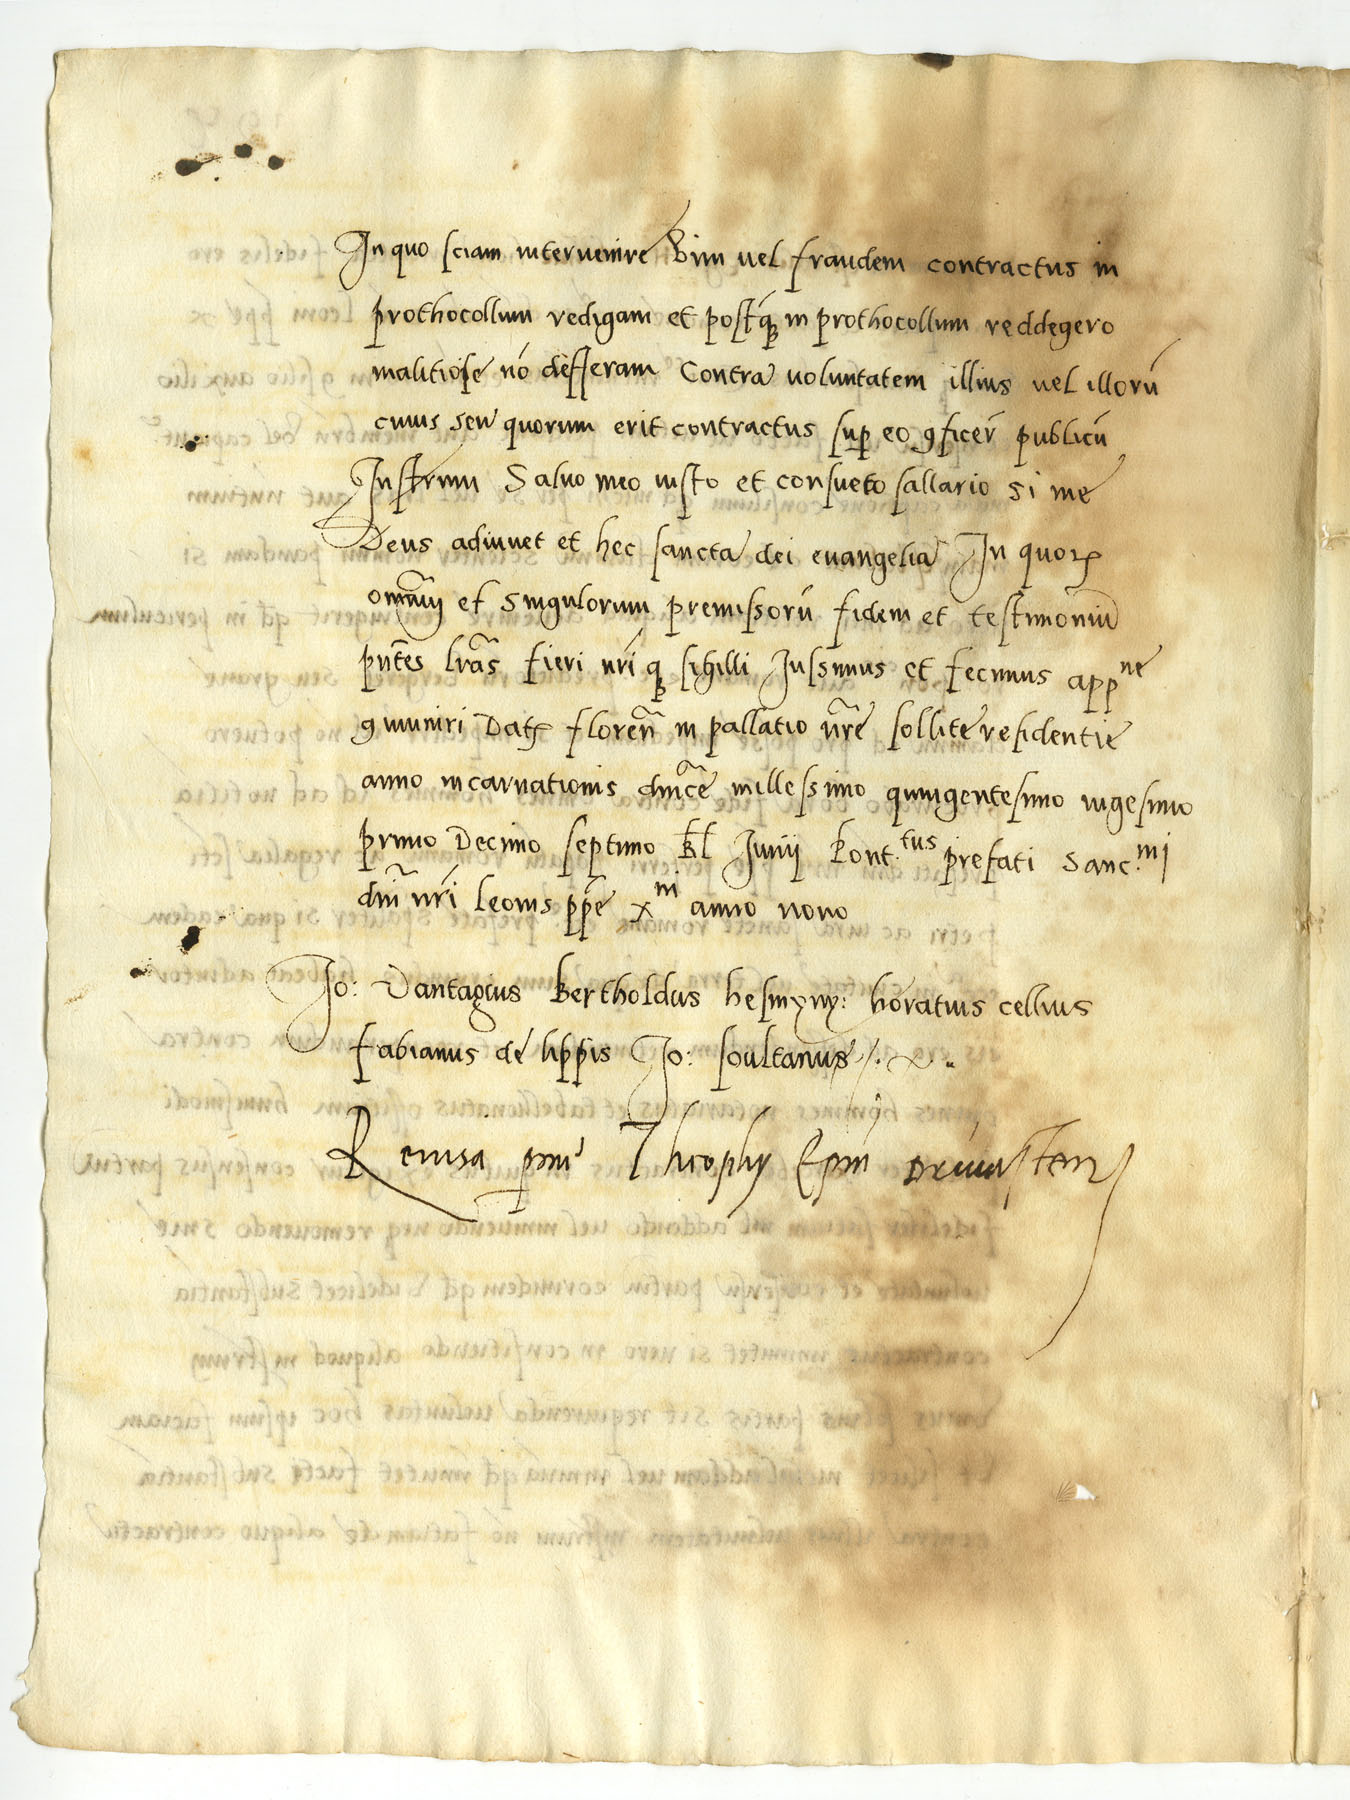 In quo sciam intervenire Vim vel fraudem contractus in
prothocollum redigam et postq̃ꝫ in prothocollum reddegero
malitiose nō defferam Contra voluntatem illius vel illorū
cuius seu quorum erit contractus sup eo ꝯficer̄ publicū
Instrum Salvo meo iusto et consueto sallario si me
Deus adiuvet et hec sancta dei evangelia In quoꝝ
omniū et singulorum premissorū fidem et testimoniū
pn̄tes lr̄as fieri nr̄iqꝫ sigilli Iussimus et fecimus app^ne
ꝯmuniri Datꝫ floren̄ in pallatio nr̄e sollite residentie
anno incarnationis dn̄ice millessimo quingentesimo vigesimo
primo Decimo septimo kl Junij Pont.^tus prefati Sanc.^mi
dn̄i nr̄i leonis pp̄e x^mi anno nono
Jo: Vantagius Bertholdus horatius cellius
fabianus de lippis Jo: soultanus